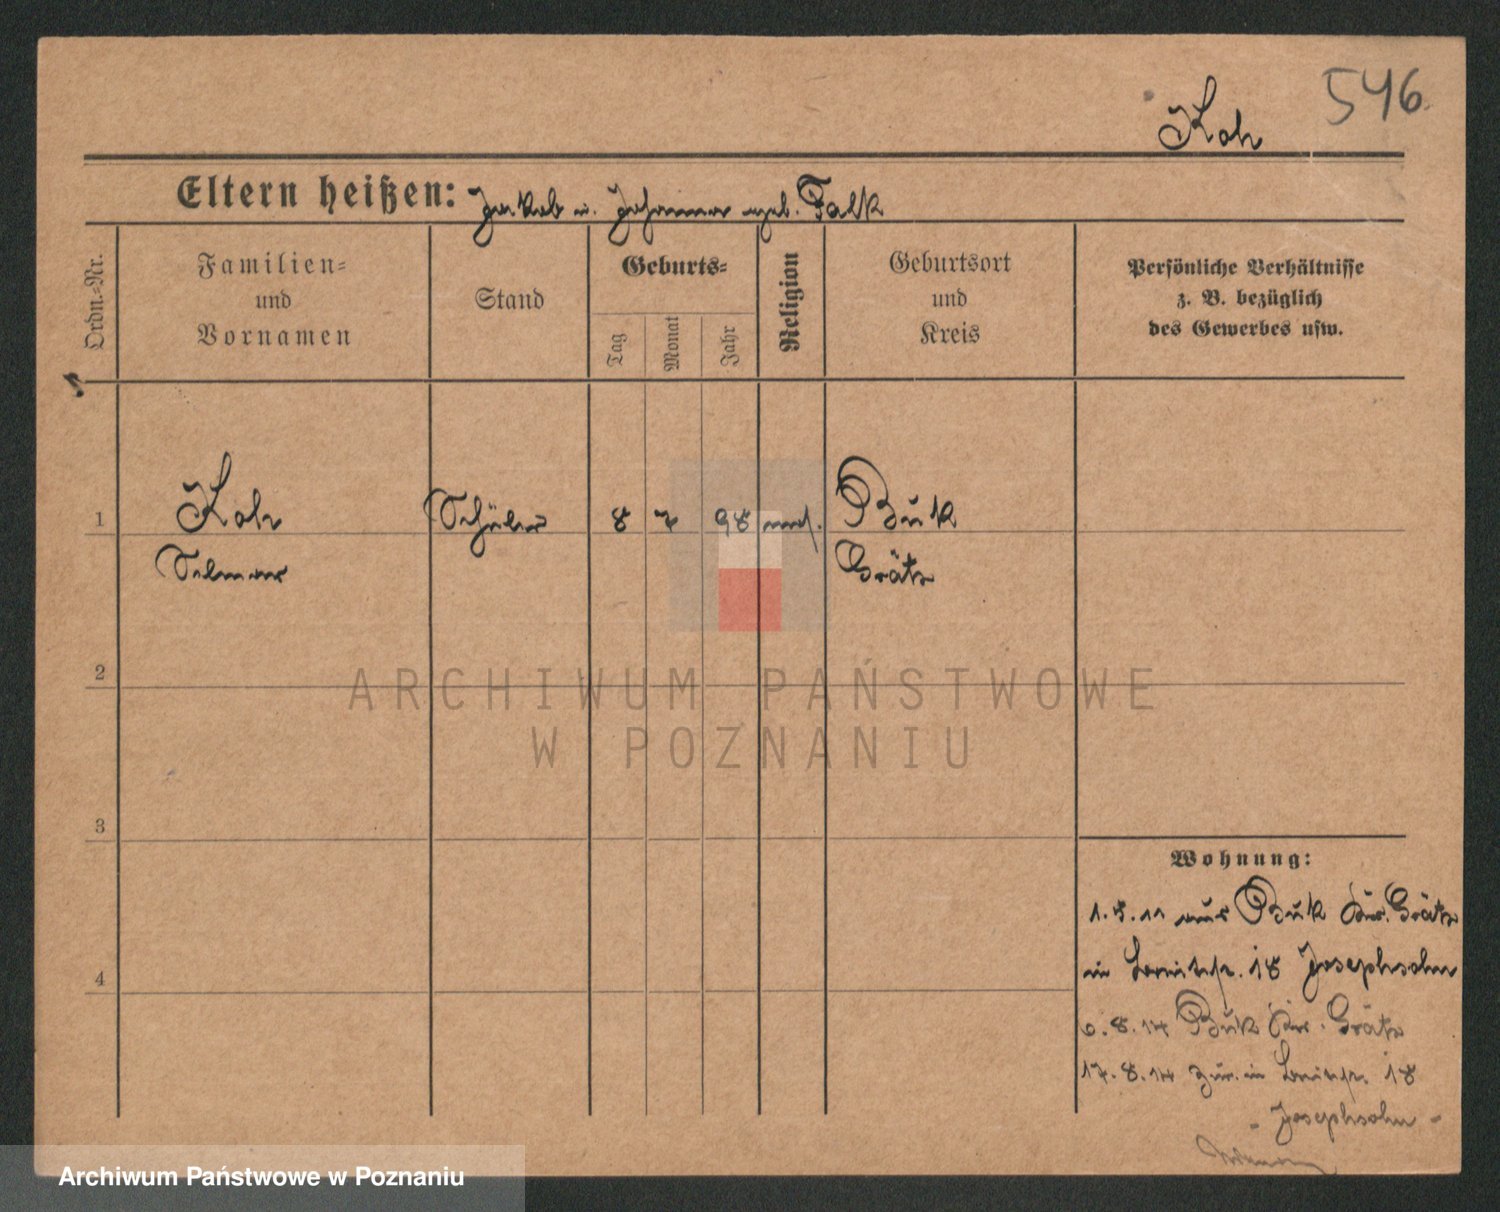 546.
Koh
Eltern heißen: Jakob u. Johanna geb. Falk
Ordn.-Nr.
Familien-
und
Vornamen
Stand
Geburts-
Tag
Monat
Jahr
Religion
Geburtsort
und
Kreis
Persönliche Verhältnisse
z. B. bezüglich
des Gewerbes usw.
1
Koh Schüler 8 7 98 mos. Buk
Selmar Grätz
2
ARCHIWUM PAŃSTWOWE
W POZNANIU
3
Wohnung:
1.5.11 aus Buk Kr. Grätz
in 18 Josephsohn
4
6.8.14 Buk Kr. Grätz
17.8.14 zur. in 18
- Josephsohn -
Archiwum Państwowe w Poznaniu